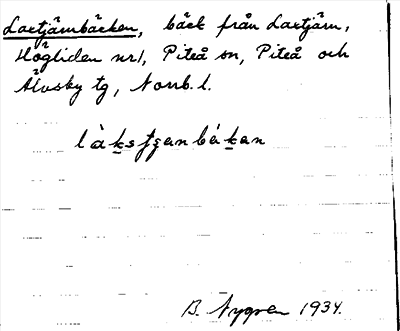 Laxtjärnbäcken, bäck från Laxtjärn,
Högliden nr 1, Piteå sn, Piteå och
Älvsby tg, Norrb. l.
B. Nygren 1934.